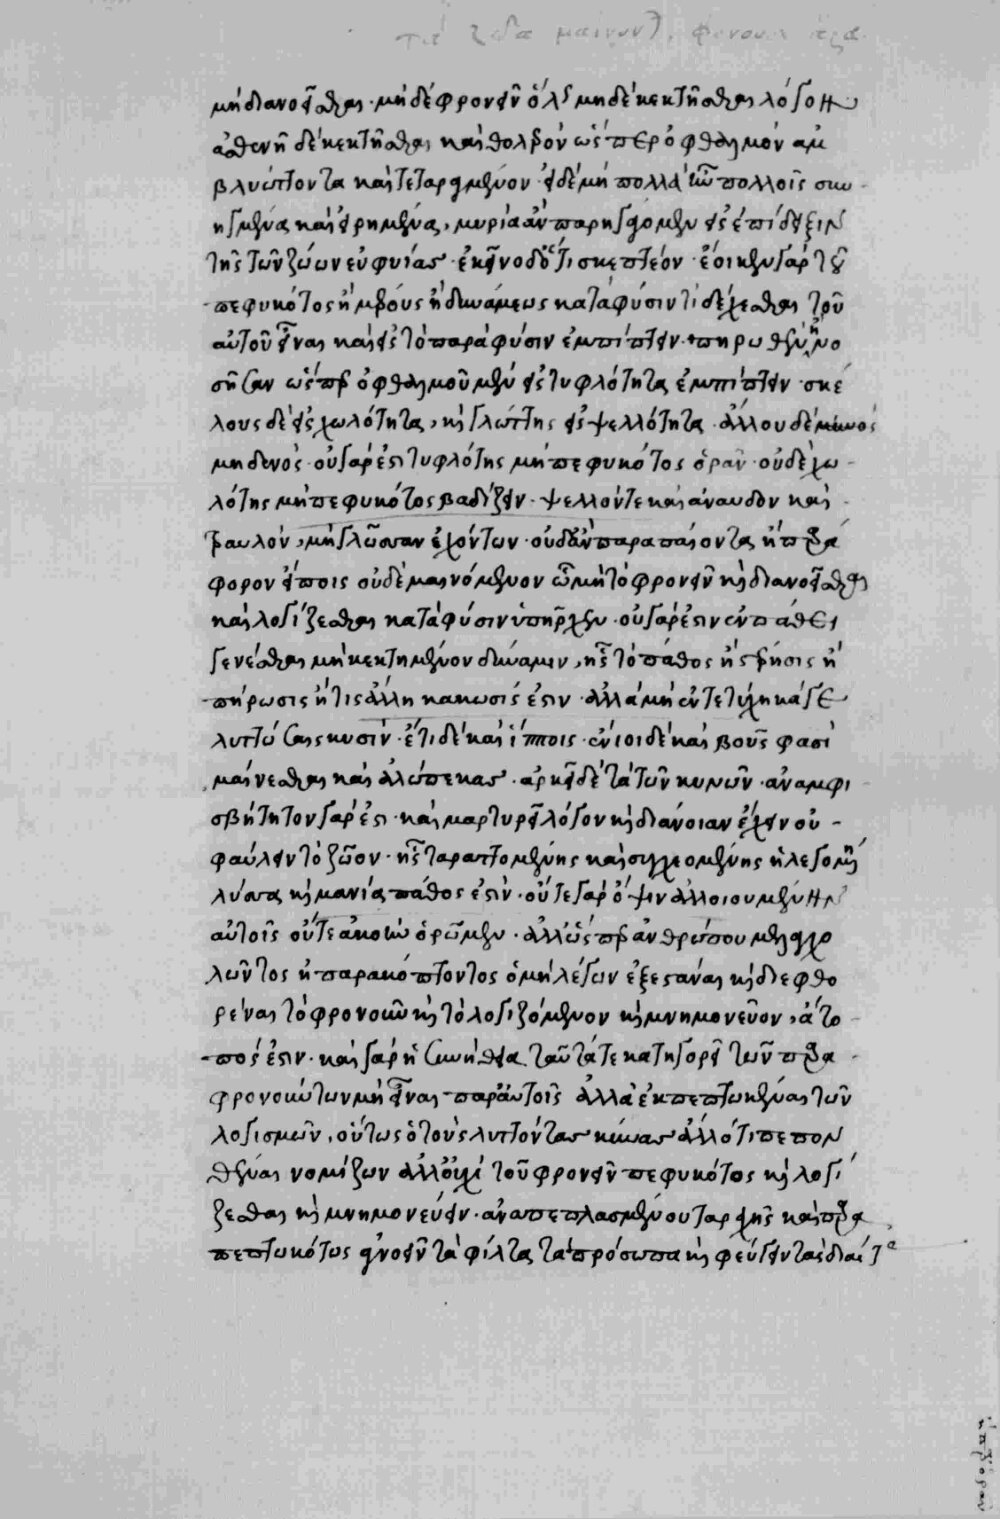 τὰ ζῶα μαίνοντ, φρονουσ ἄρα
μὴ διανοεῖσθαι· μὴ δὲ φρονεῖν ὅλως μηδὲ κεκτῆσθαι λόγον
ἀσθενῆ δὲ κεκτῆσθαι καὶ θολερὸν ὥσπερ ὀφθαλμὸν ἀμ
βλυώττοντα καὶ τεταραγμένον· εἰ δὲ μὴ πολλὰ ἦν πολλοῖς συν
ηγμένα καὶ εἰρημένα, μυρία ἂν παρηγάγομεν εἰς ἐπίδειξιν
τῆς τῶν ζώων εὐφυίας· ἐκεῖνο δὲ ἔτι σκεπτέον· ἔοικεν γὰρ τοῦ
πεφυκότος ἢ μέρους ἢ δυνάμεως κατὰ φύσιν τι δέχεσθαι τοῦ
αὐτοῦ εἶναι καὶ εἰς τὸ παρὰ φύσιν ἐμπίπτειν πηρωθὲν ἢ νο
σῆσαν ὥσπερ ὀφθαλμοῦ μὲν εἰς τυφλότητα ἐμπίπτειν· σκέ
λους δὲ εἰς χωλότητα, καὶ γλώττης εἰς ψελλότητα· ἄλλου δὲ μηδενός
μηδενός· οὐ γάρ ἐστι τυφλότης μὴ πεφυκότος ὁρᾶν· οὐδὲ χω
λότης μὴ πεφυκότος βαδίζειν· ψελλόν τε καὶ ἄναυδον καὶ
τραυλὸν, μὴ γλῶσσαν ἐχόντων· οὐδ' ἂν παραπαίοντα ἢ παρά
φορον εἴποις οὐδὲ μαινόμενον ὧ μὴ τὸ φρονεῖν καὶ διανοεῖσθαι
καὶ λογίζεσθαι κατὰ φύσιν ὑπῆρχεν· οὐ γάρ ἐστιν ἐν πάθει
γενέσθαι μὴ κεκτημένον δύναμιν, ἧς τὸ πάθος ἢ στέρησις ἢ
πήρωσις ἤ τις ἄλλη κακωσίς ἐστιν· ἀλλὰ μὴν ἐντετύχηκάς γε
λυττώσαις κυσίν· ἔτι δὲ καὶ ἵπποις· ἔνιοι δὲ καὶ βοῦς φασὶ
μαίνεσθαι καὶ ἀλώπεκας· ἀρκεῖ δὲ τὰ τῶν κυνῶν· ἀναμφι
σβήτητον γάρ ἐστι· καὶ μαρτυρεῖ λόγον καὶ διάνοιαν ἔχειν οὐ
φαύλην τὸ ζῶον· ἧς ταραττομένης καὶ συγχεομένης ἡ λεγομένη
λύσσα καὶ μανία πάθος ἐστίν· οὔτε γὰρ ὄψιν ἀλλοιουμένην
αὐτοῖς οὔτε ἀκοὴν ὁρῶμεν· ἀλλ' ὥσπερ ἀνθρώπου μελαγχο
λῶντος ἢ παρακόπτοντος ὁ μὴ λέγων ἐξεστάναι καὶ διεφθο
ρέναι τὸ φρονοῦν καὶ τὸ λογιζόμενον καὶ μνημονεῦον, ἄτο
πός ἐστιν· καὶ γὰρ ἡ συνήθεια ταῦτά τε κατηγορεῖ τῶν παρα
φρονούντων μὴ εἶναι παρ' αὐτοῖς ἀλλὰ ἐκπεπτωκέναι τῶν
λογισμῶν, οὕτως ὁ τοὺς λυττόντας κύνας ἄλλό τι πεπον
θέναι νομίζων ἀλλ' οὐχὶ τοῦ φρονεῖν πεφυκότος καὶ λογί
ζεσθαι καὶ μνημονεύειν· ἀναπεπλασμένου ταραχῆς καὶ παρα
πεπτωκότος ἀγνοεῖν τὰ φίλτατα πρόσωπα καὶ φεύγειν τὰς διαίτα